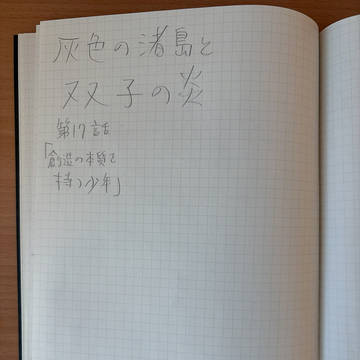 灰色の渚島と
双子の炎
第17話
「創造の本質を
持つ少年」